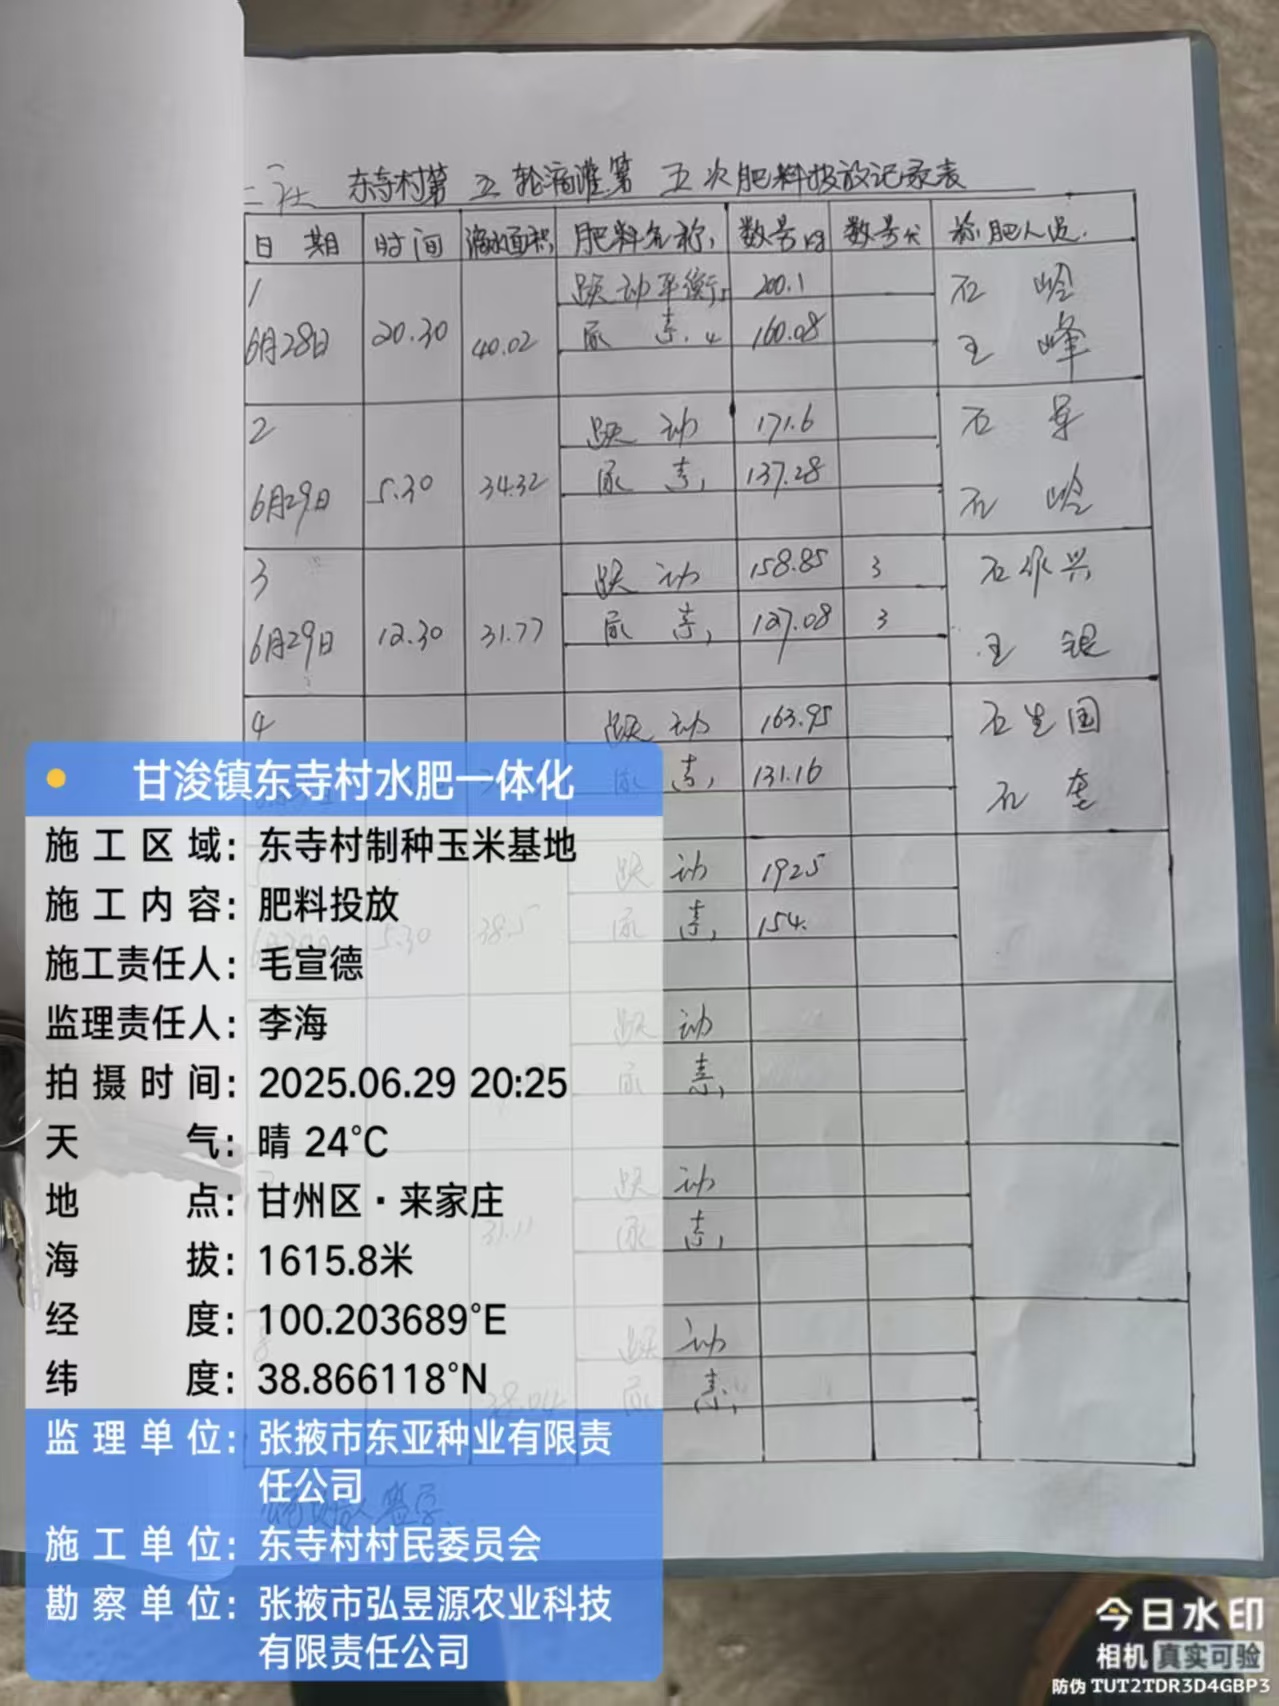 二社 东寺村第五轮滴灌第五次肥料投放记录表
日期 时间 滴水面积 肥料名称 数量kg 数量袋 施肥人员
1 跃动平衡 200.1 石 岭
6月28日 20.30 40.02 尿素 160.08 王 峰
2 跃动 171.6 石 军
6月29日 5.30 34.32 尿素 137.28 石 岭
3 跃动 158.85 3 石作兴
6月29日 12.30 31.77 尿素 127.08 3 王 银
4 跃动 163.95 石生国
尿素 131.16 石
跃动 192.5
5.30 38.5 尿素 154.
跃动
尿素
跃动
尿素
8 跃动
38.04 尿素
签字
甘浚镇东寺村水肥一体化
施工区域：东寺村制种玉米基地
施工内容：肥料投放
施工责任人：毛宣德
监理责任人：李海
拍摄时间：2025.06.29 20:25
天气：晴 24°C
地点：甘州区·来家庄
海拔：1615.8米
经度：100.203689°E
纬度：38.866118°N
监理单位：张掖市东亚种业有限责
任公司
施工单位：东寺村村民委员会
勘察单位：张掖市弘昱源农业科技
有限责任公司
今日水印
相机 真实可验
防伪 TUT2TDR3D4GBP3